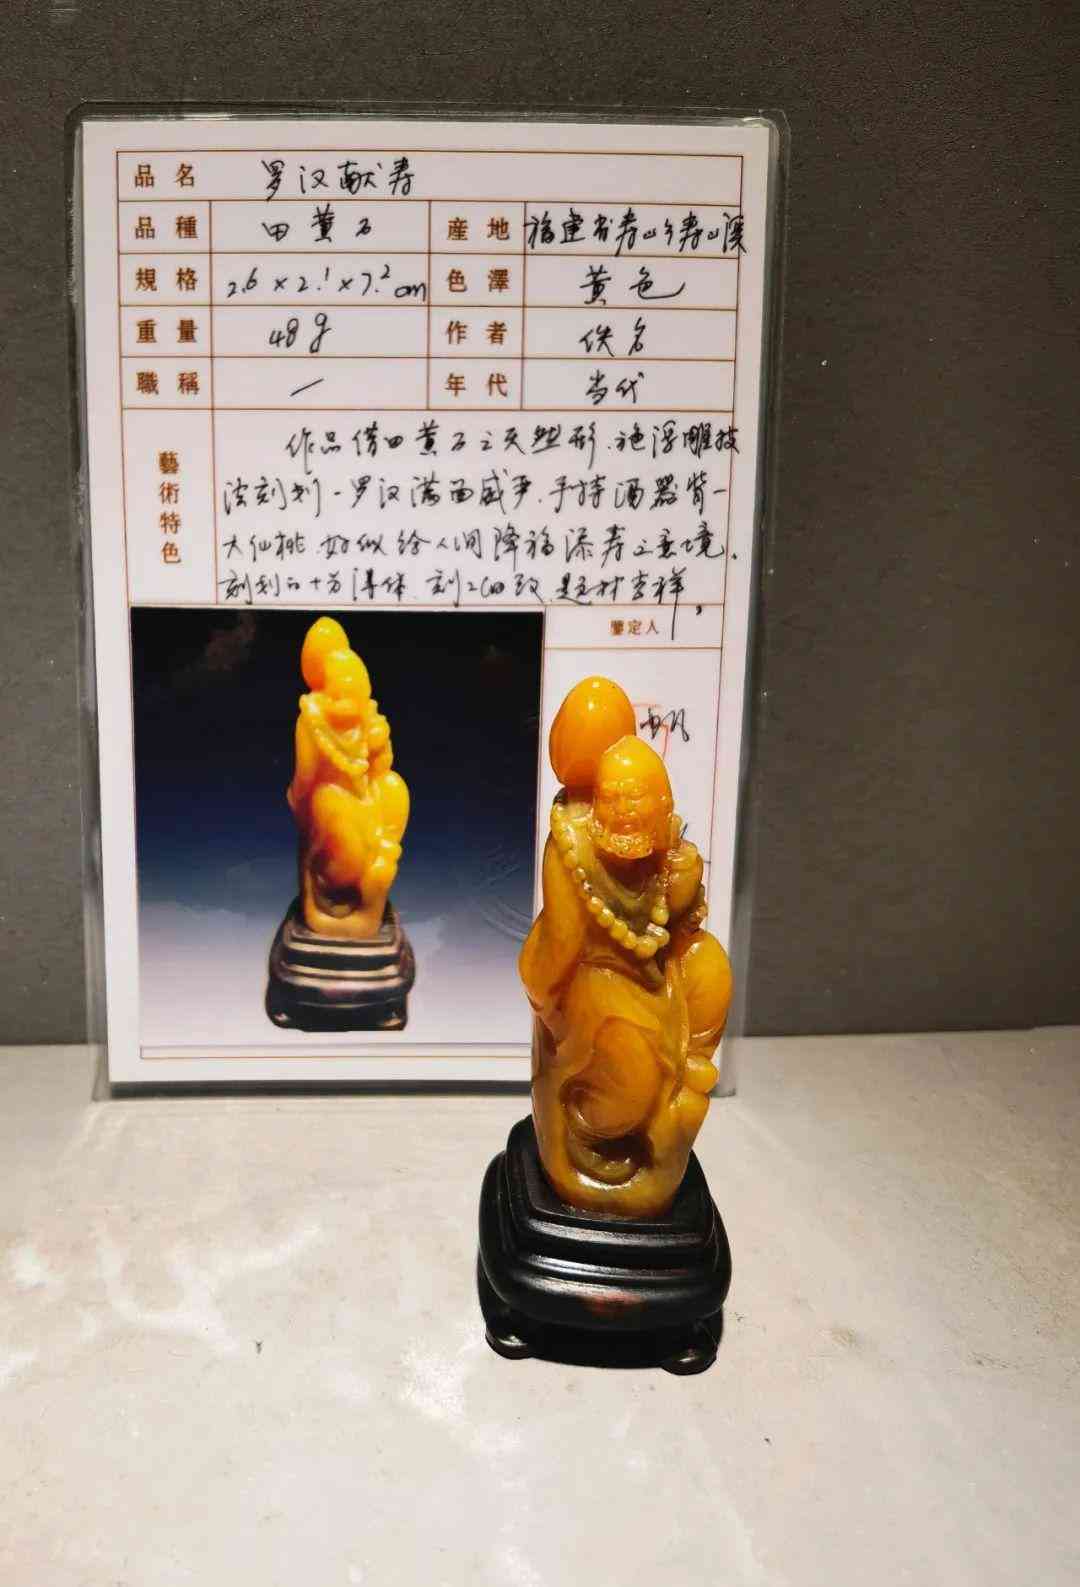 品名 罗汉献寿
品種 田黄石 産地 福建省寿山乡寿山溪
規格 2.6×2.1×7.2cm 色澤 黄色
重量 48g 作者 佚名
職稱 一 年代 当代
藝術特色
作品借田黄石之天然形、施浮雕技
法刻划一罗汉满面威严、手持酒器背一
大仙桃、好似给人间降福添寿之意境、
刻划的十分得体、刻工细致、题材吉祥,
鑒定人